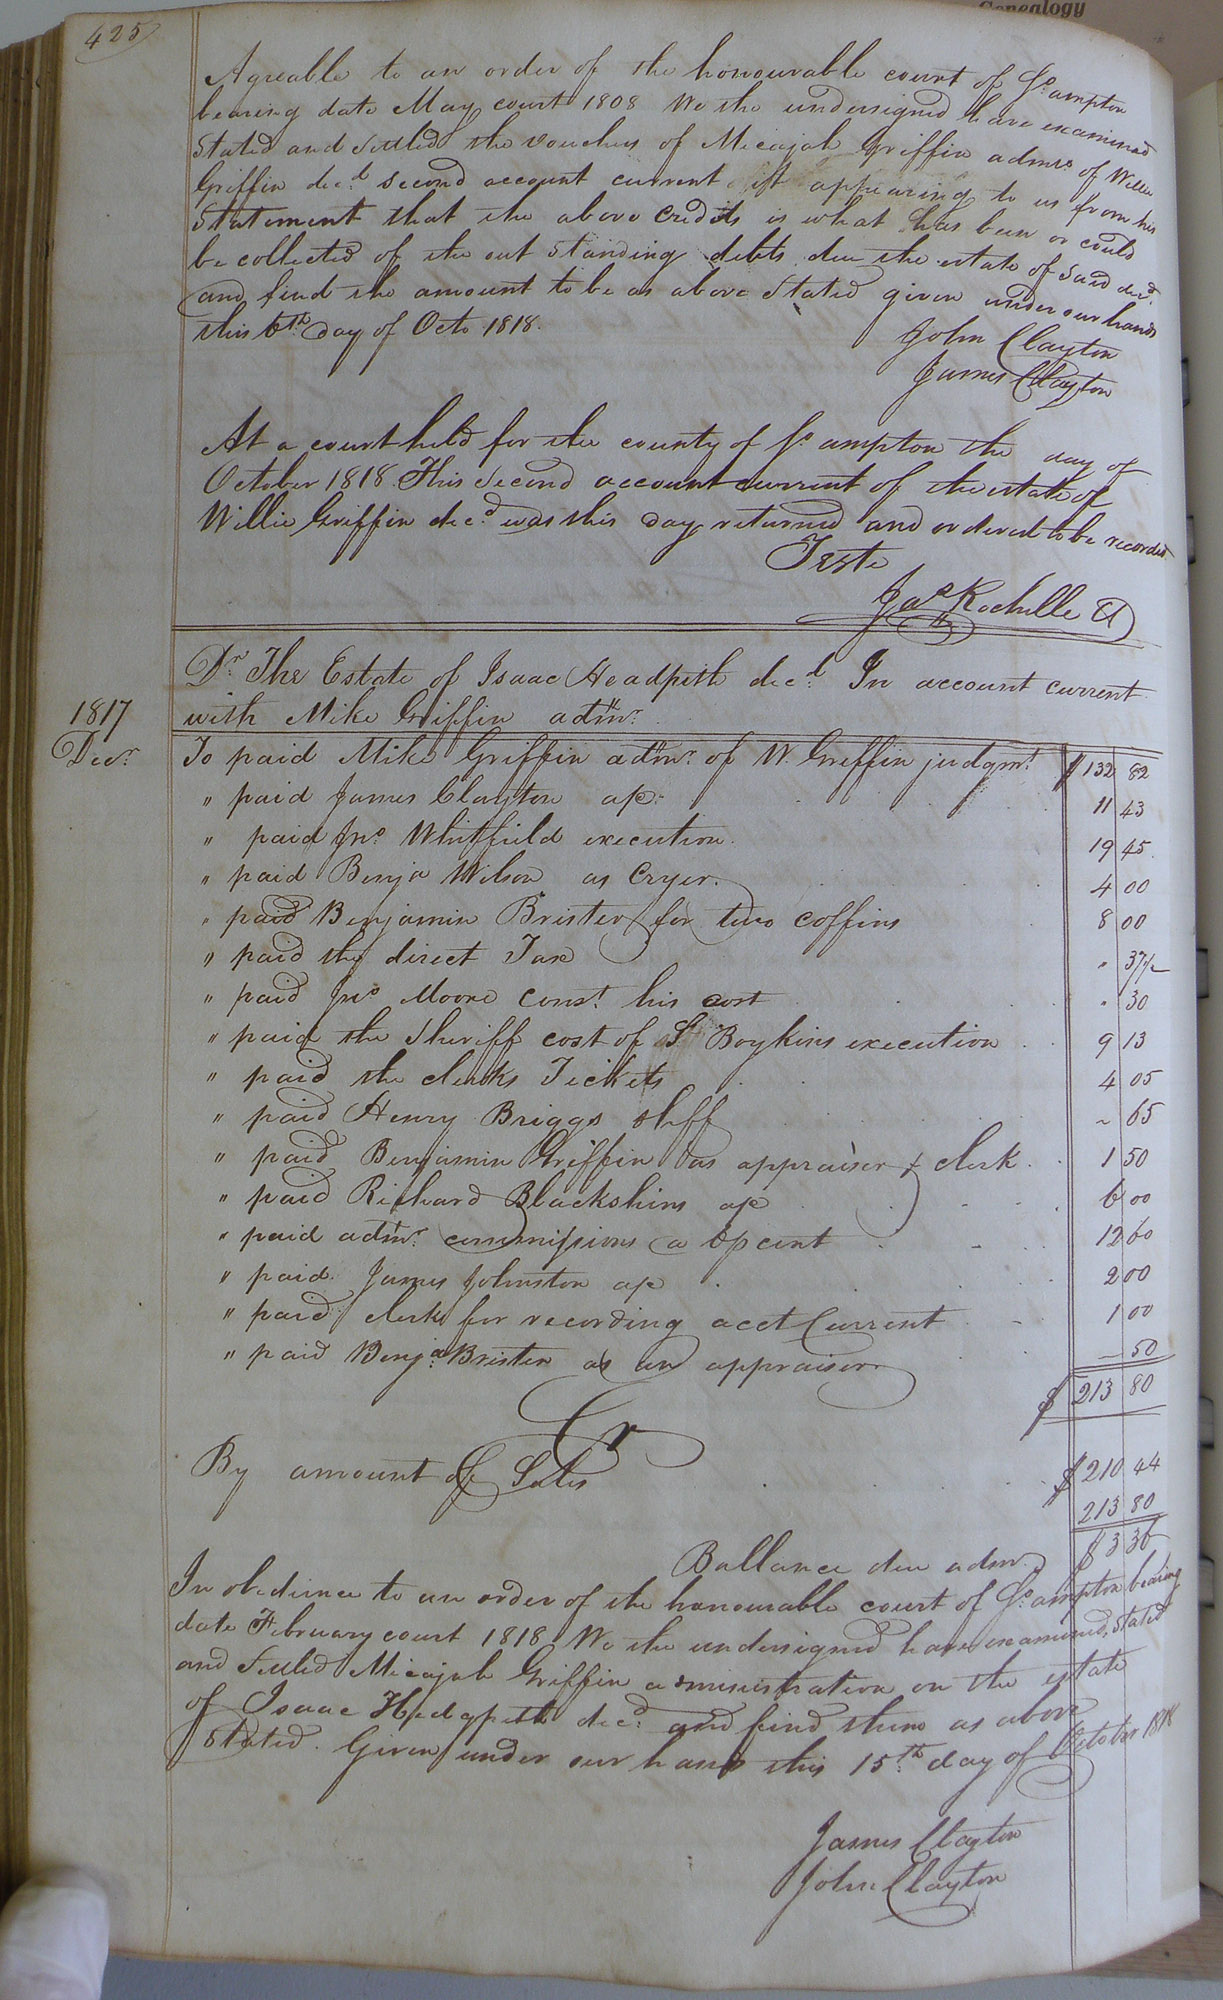 Genealogy
425
Agreable to an order of the honourable court of So. ampton
bearing date May court 1808 We the undersigned have examined
Stated and Settled the vouchers of Micajah Griffin admr. of Willie
Griffin decd. second account current it appearing to us from his
Statement that the above Credits is what has been or could
be collected of the out Standing debts due the estate of Said decd.
and find the amount to be as above Stated given under our hands
this 6th. day of Octo 1818.
John Clayton
James Clayton
At a court held for the county of So. ampton the day of
October 1818. This Second account current of the estate of
Willie Griffin decd. was this day returned and ordered to be recorded
Teste
Jas. Rochelle
Dr. The Estate of Isaac Headpeth decd. In account current
with Mike Griffin admr.
1817
Decr.
To paid Mike Griffin admr. of W. Griffin judgmt. $ 132 82
" paid James Clayton a/c. 11 43
" paid Jno. Whitfield execution 19 45
" paid Benja Wilson as Cryer. 4 00
" paid Benjamin Brister for two coffins 8 00
" paid the direct Tax " 37 1/2
" paid Jno. Moore Const. his cost " 30
" paid the Sheriff cost of S. Boykins execution 9 13
" paid the clerks Tickets 4 05
" paid Henry Briggs shff ~ 65
" paid Benjamin Griffin as appraiser & clerk 1 50
" paid Richard Blackshins a/c 6 00
" paid admr. commissions a 6 pcent 12 60
" paid James Johnston a/c 2 00
" paid clerk for recording acct Current 1 00
" paid Benja. Brister as an appraiser — 50
$ 213 80
Cr
By amount of Sales $ 210 44
213 80
Ballance due admr. $ 3 36
In obedience to an order of the honourable court of So. ampton bearing
date February court 1818 We the undersigned have examined, Stated
and Settled Micajah Griffin administration on the estate
of Isaac Hedgpeth decd. and find them as above
Stated. Given under our hands this 15th. day of October 1818
James Clayton
John Clayton